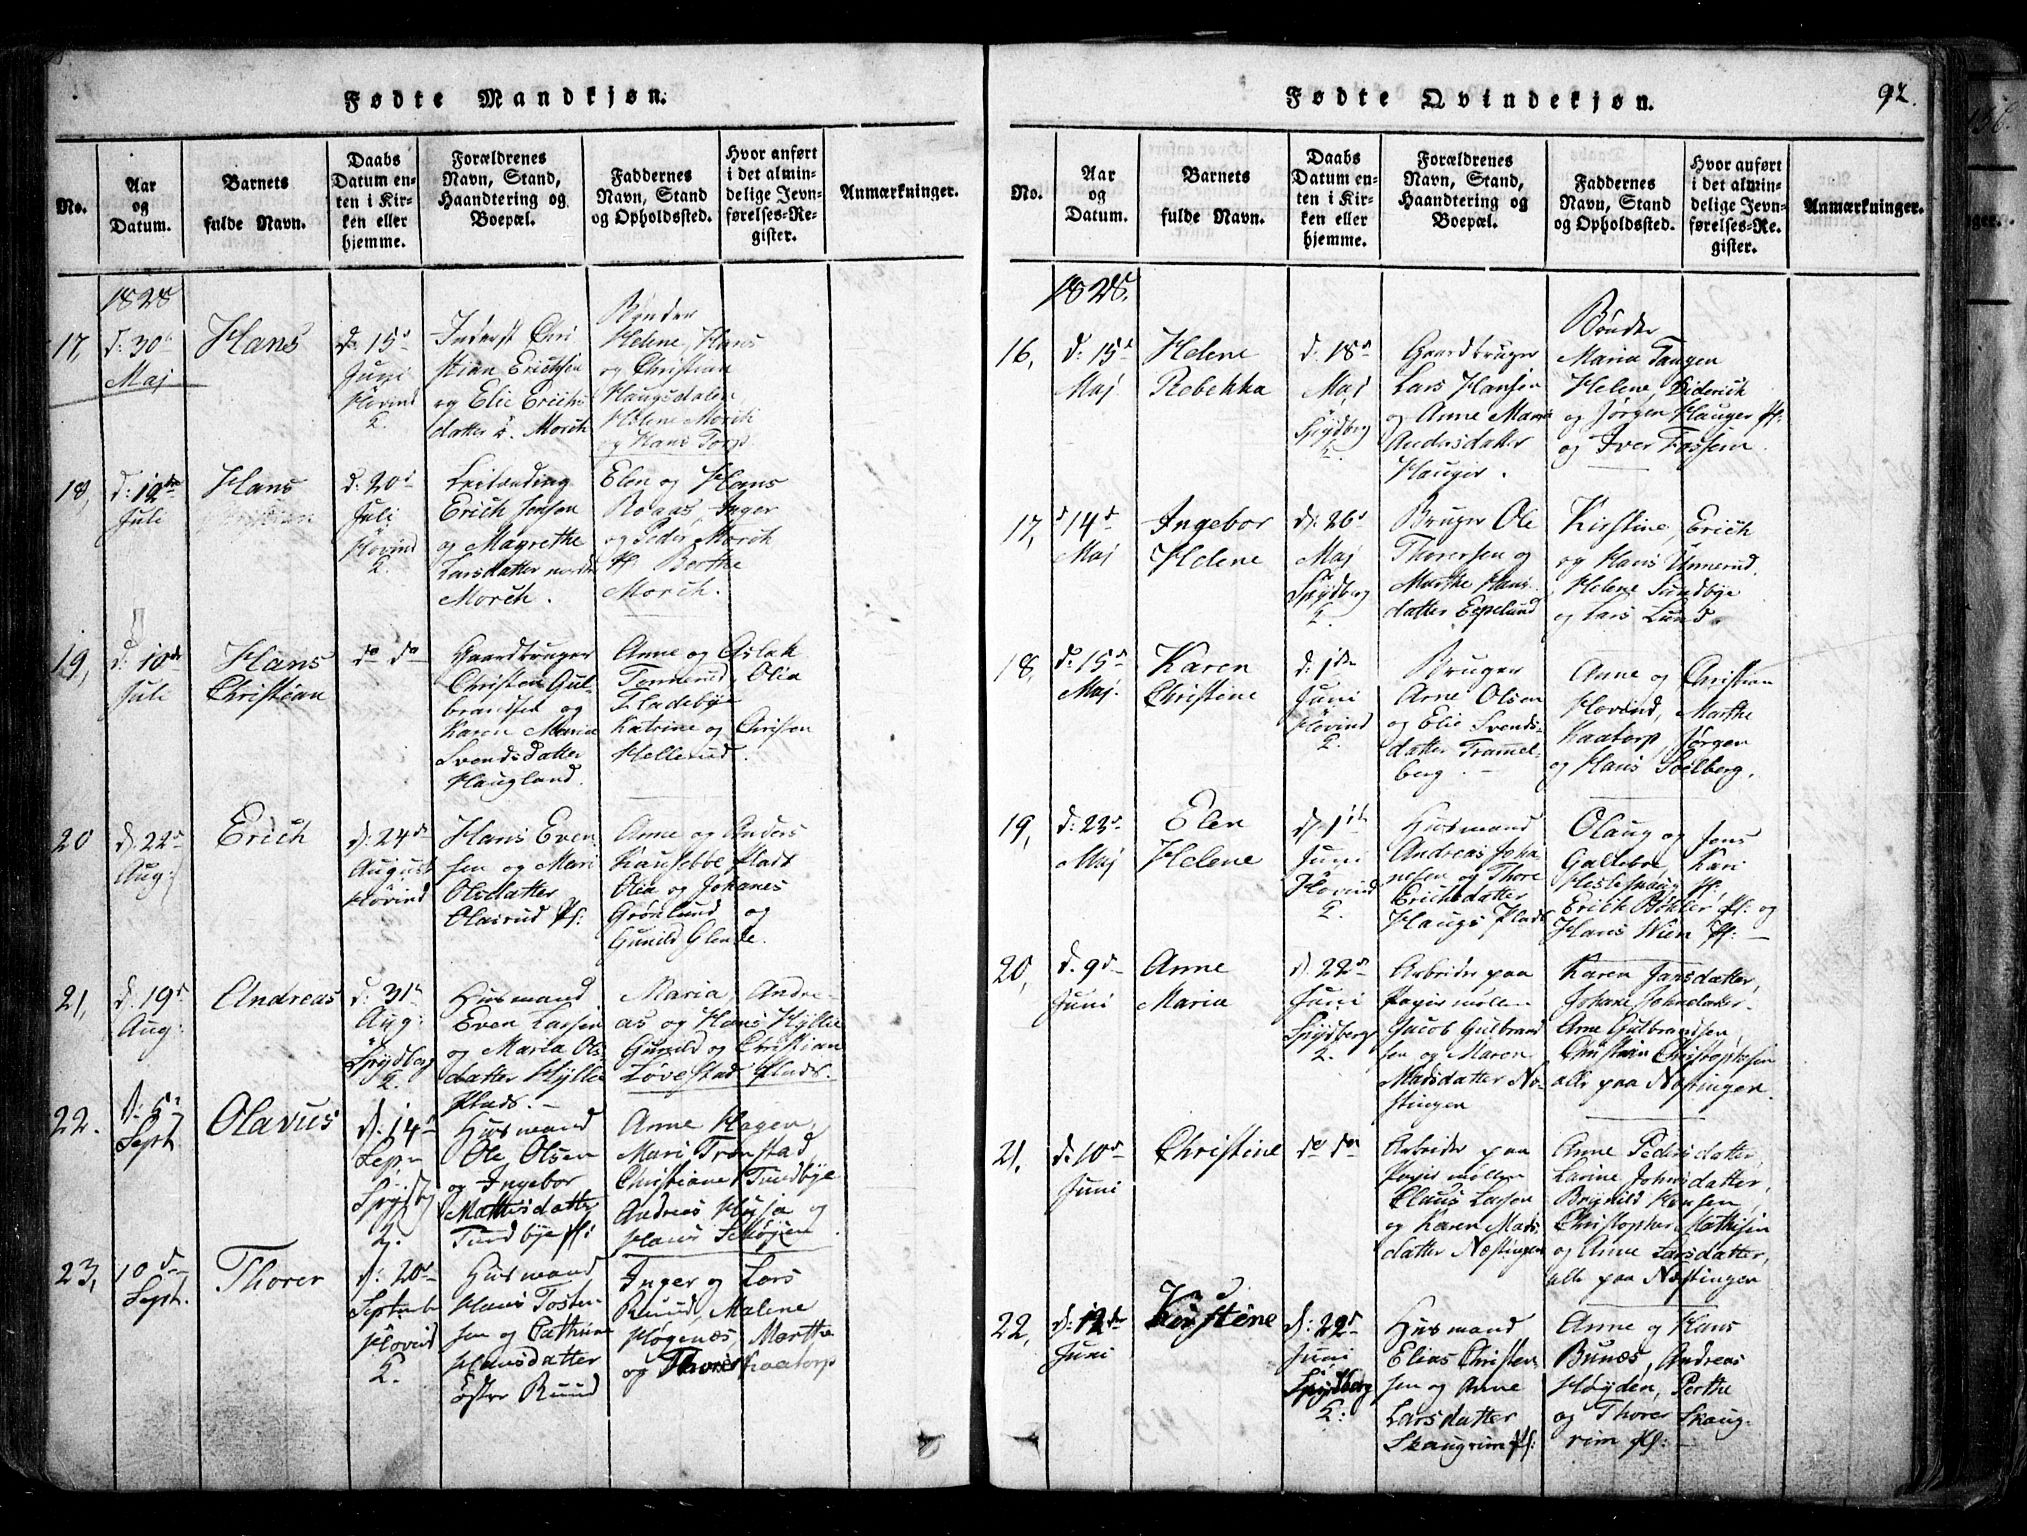 Fødte Mandkjøn.
No.
Aar
og
Datum.
Barnets
fulde Navn.
Daabs
Datum en-
ten i Kir-
ken eller
hjemme.
Forældrenes
Navn, Stand,
Haandtering og
Boepæl.
Faddernes
Navn, Stand
og Opholdssted.
Hvor anført
i det almin-
delige Jevn-
førelses-Re-
gister.
Anmærkninger.
1828
17,
d: 30
Maj
Hans
d. 15
Juni
Hovind
2.
Inderst Chri
stian Erichsen
og Elie Erichs
datter Morch
Bønder
Helene, Hans
og Christian
Haugsdalen,
Helene Morch
og Hans Torp
18,
d: 12te
Juli
Hans
Christian
d: 20
Juli
Hovind
2.
Leilænding
Erich Jensen
og Magrethe
Larsdatter nordre
Morch.
Elen og Hans
Roaas, Inger
og Peder Morch
Pf. Berthe
Morch.
19,
d: 10de
Juli
Hans
Christian
do do
Gaardbruger
Christen Gul-
brandsen og
Karen Maria
Svendsdatter
Haugland.
Anne og Aslak
Tonnerud, Olia
Fladebye
Katrine og Christen
Hellerud.
20
d. 22
Aug:
Erich
d: 24de
August
Hovind
Hans Even
sen og Mari
Olsdatter
Olasrud Pf:
Anne og Anders
Plads
Olia og Johanes
Grønlund og
Gunild Glende.
21,
d. 19
Aug:
Andreas
d: 31
Aug:
Spydberg
2.
Husmand
Even Larsen
og Maria Ols
datter Hyllie
Plads. -
Maria, Andre-
as og Hans Hyllie
Gunild og Christian
Løvestad Plads.
22.
d: 5
Sept
Olavus
d. 14
Sept
Spydbg
2.
Husmand
Ole Olsen
og Ingebor
Mathisdatter
Sundbye Pf:
Anne Hagen,
Mari Tronstad,
Christiane Sundbye
Andreas Husa og
Hans Skøjen
23,
10de
Sept.
Thorer
d: 20
Septembr
Hovind
2.
Husmand
Hans Tosten-
sen og Cathrine
Hansdatter
øster Ruud
Inger og Lars
Ruud, Malene
Høgenæs, Marthe
og Thorer Kaatorp
Fødte Qvindekjøn.
92.
No.
Aar
og
Datum.
Barnets
fulde Navn.
Daabs
Datum en-
ten i Kir-
ken eller
hjemme.
Forældrenes
Navn, Stand,
Haandtering og
Boepæl.
Faddernes
Navn, Stand
og Opholdssted.
Hvor anført
i det almin-
delige Jevn-
førelses-Re-
gister.
Anmærkninger.
1828.
16,
d: 15
Maj
Helene
Rebekka
d: 18
Maj
Spydberg
2.
Gaardbruger
Lars Hansen
og Anne Marie
Andersdatter
Hauger.
Bønder
Maria Tangen
Helene, Diderich
og Jørgen Hauger Pf:
og Iver Fossum.
17,
d 14
Maj
Ingebor
Helene
d: 26
Maj
Spydberg
2.
Bruger Ole
Thorersen og
Marthe Hans
datter Egelund
Kirstine, Erich
og Hans Unnerud,
Helene Sundbye
og Lars Lund.
18,
d: 15
Maj.
Karen
Christine
d: 1ste
Juni
Hovind
2.
Bruger
Arne Olsen
og Elie Svends-
datter Trømel-
berg. -
Anne og Christian
Hovind, Marthe
Kaatorp Jørgen
og Hans Solberg.
19,
d: 23
Maj
Elen
Helene
d. 1ste
Juni
Hovind
2.
Husmand
Andreas Joha
nesen og Thore
Erichsdatter
Haugs Plads
Olaug og Jens
Gallebye, Kari
Heslehaug Pf:
Erich Bøhler Pf: og
Hans Wien Pf: -
20,
d. 9
Juni
Anne
Maria
d. 22
Juni
Spydberg
2.
Arbeider paa
Papirmøllen
Jacob Gulbrand
sen og Maren
Madsdatter Næ-
stingen
Karen Jansdatter,
Johane Johnsdatter
Arne Gulbrandsen,
Christian Christophersen
alle paa Næstingen.
21,
d. 10
Juni
Christine
do do
Arbeider paa
Papirmøllen
Claus Larsen
og Karen Mads-
datter Næstingen
Anne Pedersdatter,
Larine Johnsdatter,
Brynild Hansen,
Christopher Mathisen
og Anne Larsdatter,
alle paa Næstingen
22,
d: 12
Juni
Kirstine
d: 22
Juni
Spydberg
2:
Husmand
Elias Christen
sen og Anne
Larsdatter
Skaugrim Pf:
Anne og Hans
Bunæs, Andreas
Høyden, Berthe
og Thorer Skaug-
rim Pf: -